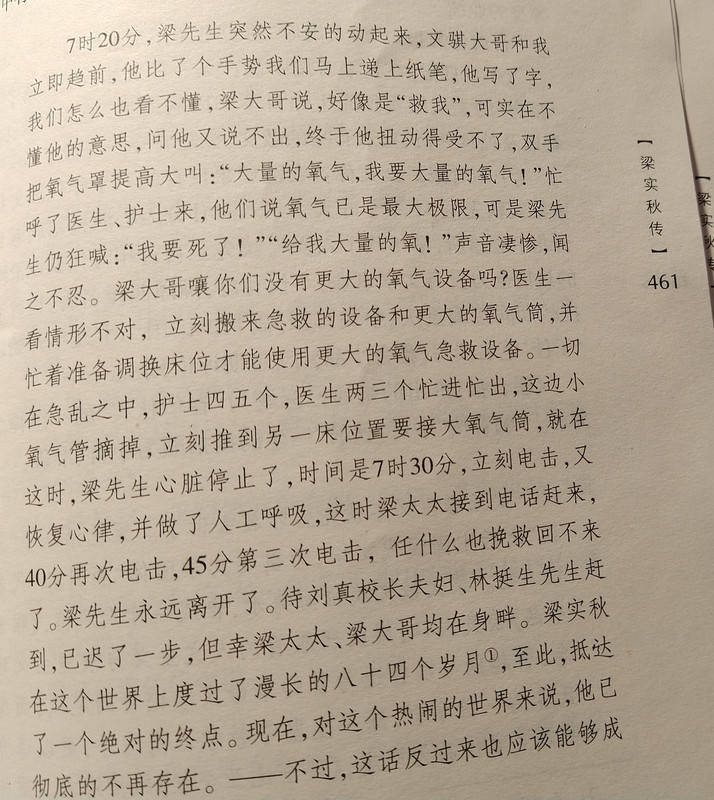 7时20分，梁先生突然不安的动起来，文骐大哥和我
立即趋前，他比了个手势我们马上递上纸笔，他写了字，
我们怎么也看不懂，梁大哥说，好像是“救我”，可实在不
懂他的意思，问他又说不出，终于他扭动得受不了，双手
把氧气罩提高大叫：“大量的氧气，我要大量的氧气！”忙
呼了医生、护士来，他们说氧气已是最大极限，可是梁先
生仍狂喊：“我要死了！”“给我大量的氧！”声音凄惨，闻
之不忍。梁大哥嚷你们没有更大的氧气设备吗？医生一
看情形不对，立刻搬来急救的设备和更大的氧气筒，并
忙着准备调换床位才能使用更大的氧气急救设备。一切
在急乱之中，护士四五个，医生两三个忙进忙出，这边小
氧气管摘掉，立刻推到另一床位置要接大氧气筒，就在
这时，梁先生心脏停止了，时间是7时30分，立刻电击，又
恢复心律，并做了人工呼吸，这时梁太太接到电话赶来，
40分再次电击，45分第三次电击，任什么也挽救回不来
了。梁先生永远离开了。待刘真校长夫妇、林挺生先生赶
到，已迟了一步，但幸梁太太、梁大哥均在身畔。梁实秋
在这个世界上度过了漫长的八十四个岁月①，至此，抵达
了一个绝对的终点。现在，对这个热闹的世界来说，他已
彻底的不再存在。——不过，这话反过来也应该能够成
【梁实秋传】
461